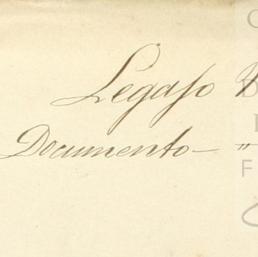 Legajo
Documento — "